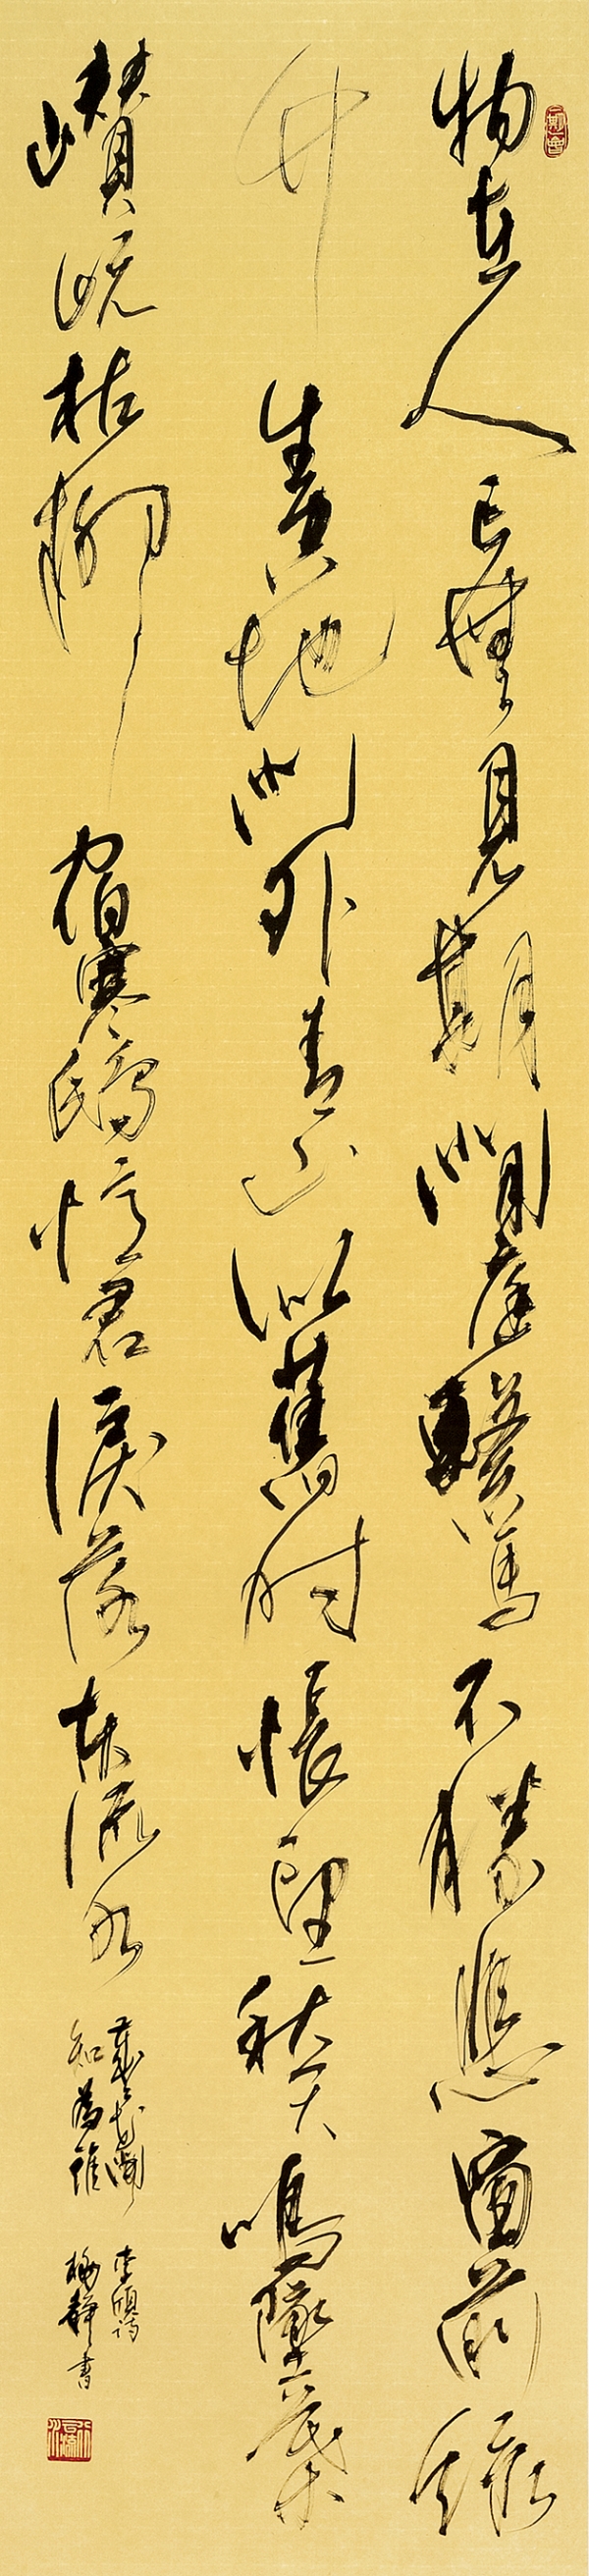 物在人亡無見期閒庭繫馬不勝悲窗前綠
竹生空地門外青山似舊時悵望秋天鳴墜葉
巑岏枯柳宿寒鴟憶君淚落東流水
歲歲花開
知為誰
李頎詩
梅靜書